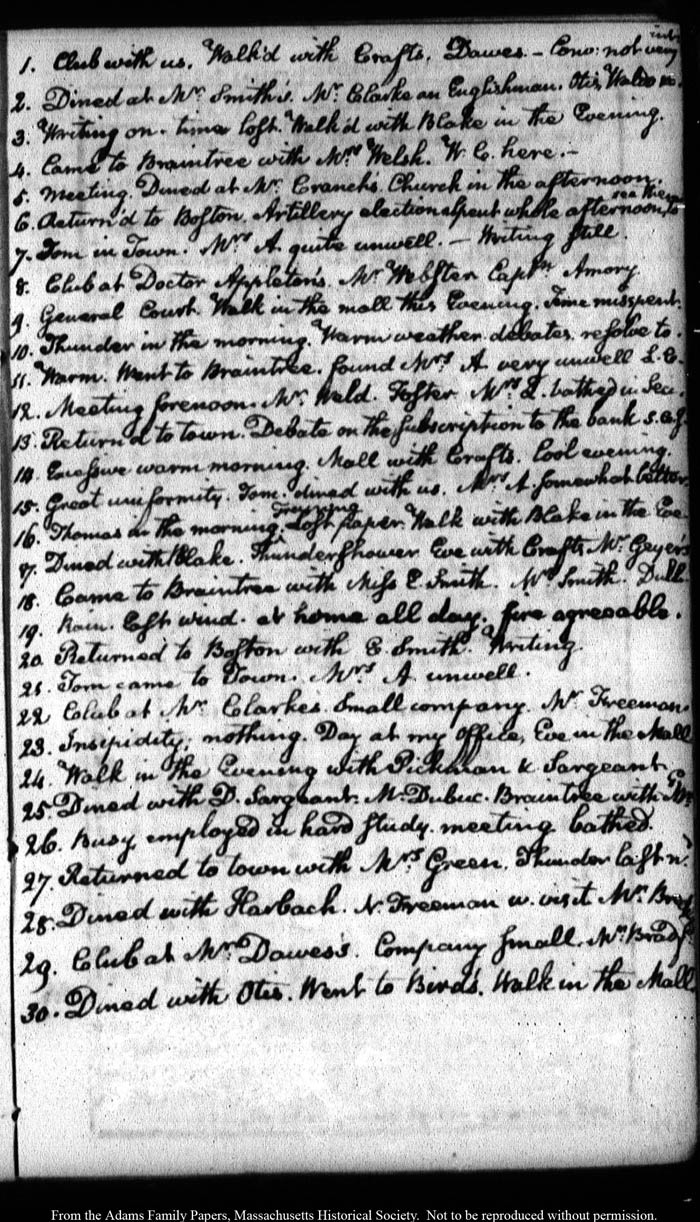 1. Club with us. Walk'd with Crafts. Dawes. – Conv: not very
2. Dined at Mr. Smith's. Mr. Clarke an Englishman. Otis, Waldo
3. Writing on. time lost. Walk'd with Blake in the Evening.
4. Came to Braintree with Mrs. Welsh. W. C. here. –
5. Meeting. Dined at Mr. Cranch's. Church in the afternoon.
6. Return'd to Boston. Artillery election. Spent whole afternoon
7. Tom in Town. Mrs A. quite unwell. – Writing still.
8. Club at Doctor Appleton's. Mr. Webster Captn. Amory.
9. General Court. Walk in the mall this Evening. Time misspent.
10. Thunder in the morning. Warm weather. debates. resolve to.
11. Warm. Went to Braintree. found Mrs. A. very unwell
12. Meeting forenoon. Mr. Weld. Foster. bathed in Sea.
13. Return'd to town. Debate on the subscription to the bank
14. Excessive warm morning. Mall with Crafts. Cool evening.
15. Great uniformity. Tom. dined with us. Mrs A. somewhat better
16. Thomas in the morning. Lost paper. Walk with Blake in the Eve
17. Dined with Blake. Thunder shower. Eve with Crafts, Mr. Geyer's
18. Came to Braintree with Miss E Smith. Mr Smith. Dull
19. Rain. East wind. at home all day. fire agreeable.
20. Returned to Boston with E. Smith. Writing.
21. Tom came to Town. Mrs A unwell.
22 Club at Mr. Clarke's. Small company. Mr Freeman.
23. Insipidity; nothing. Day at my Office, Eve in the Mall
24. Walk in the Evening with Pickman & Sargeant.
25. Dined with D. Sargeant. Mr. Dubuc. Braintree with
26. Busy employed in hard study. meeting. bathed.
27. Returned to town with Mrs Green. Thunder last n.
28. Dined with Harbach. N. Freeman w. visit Mr. Brad
29. Club at Mr. Dawes's. Company small. Mr. Bradf
30. Dined with Otis. Went to Bird's. Walk in the Mall
From the Adams Family Papers, Massachusetts Historical Society. Not to be reproduced without permission.